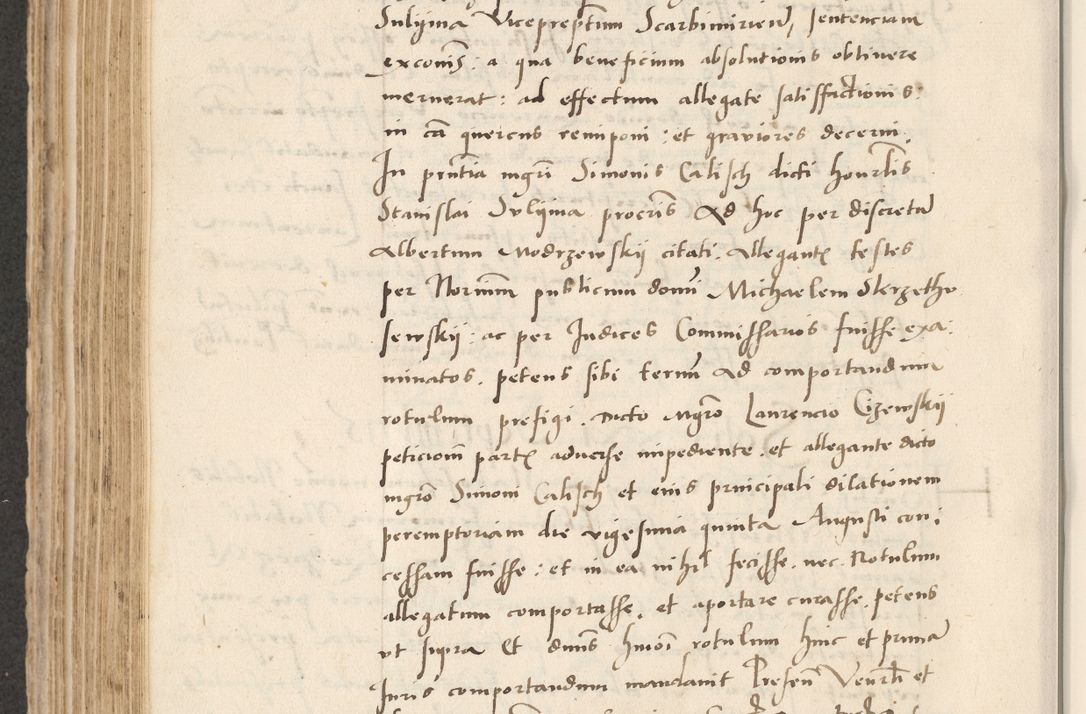 Sulyma Viceprepttum Scarbimirien, sentenciam
excomis: a qua beneficium absolutionis obtinere
meruerat: ad effectum allegate satisffactionis
in eam quercus remiponi: et graviores decerni.
In pntia mgri Simonis Calisch dicti honrlis
Stanislai Sulyma procris Ad hoc per discretu
Albertum Modrzewskij citati. Allegantz testes
per Norium publicum domi Michaelem Skrzetho
sewskij: ac per Iudices Commissarios fuisse exa
minatos. petens sibi termi Ad comportandum
rotulum prefigi. Dicto Mgro Laurencio Cizewskij
peticioni partz adverse impediente. et allegante dicto
mgro Simoni Calisch et eius principali dilationem
peremptoriam die vigesima quinta Augusti con
cessam fuisse: et in ea nihil fecisse. nec Rotulum
allegatum comportasse. et aportare curasse. petens
ut supra Et dnus hmoi rotulum hinc et prima
Iuris comportandum mandavit Presen Venrli et